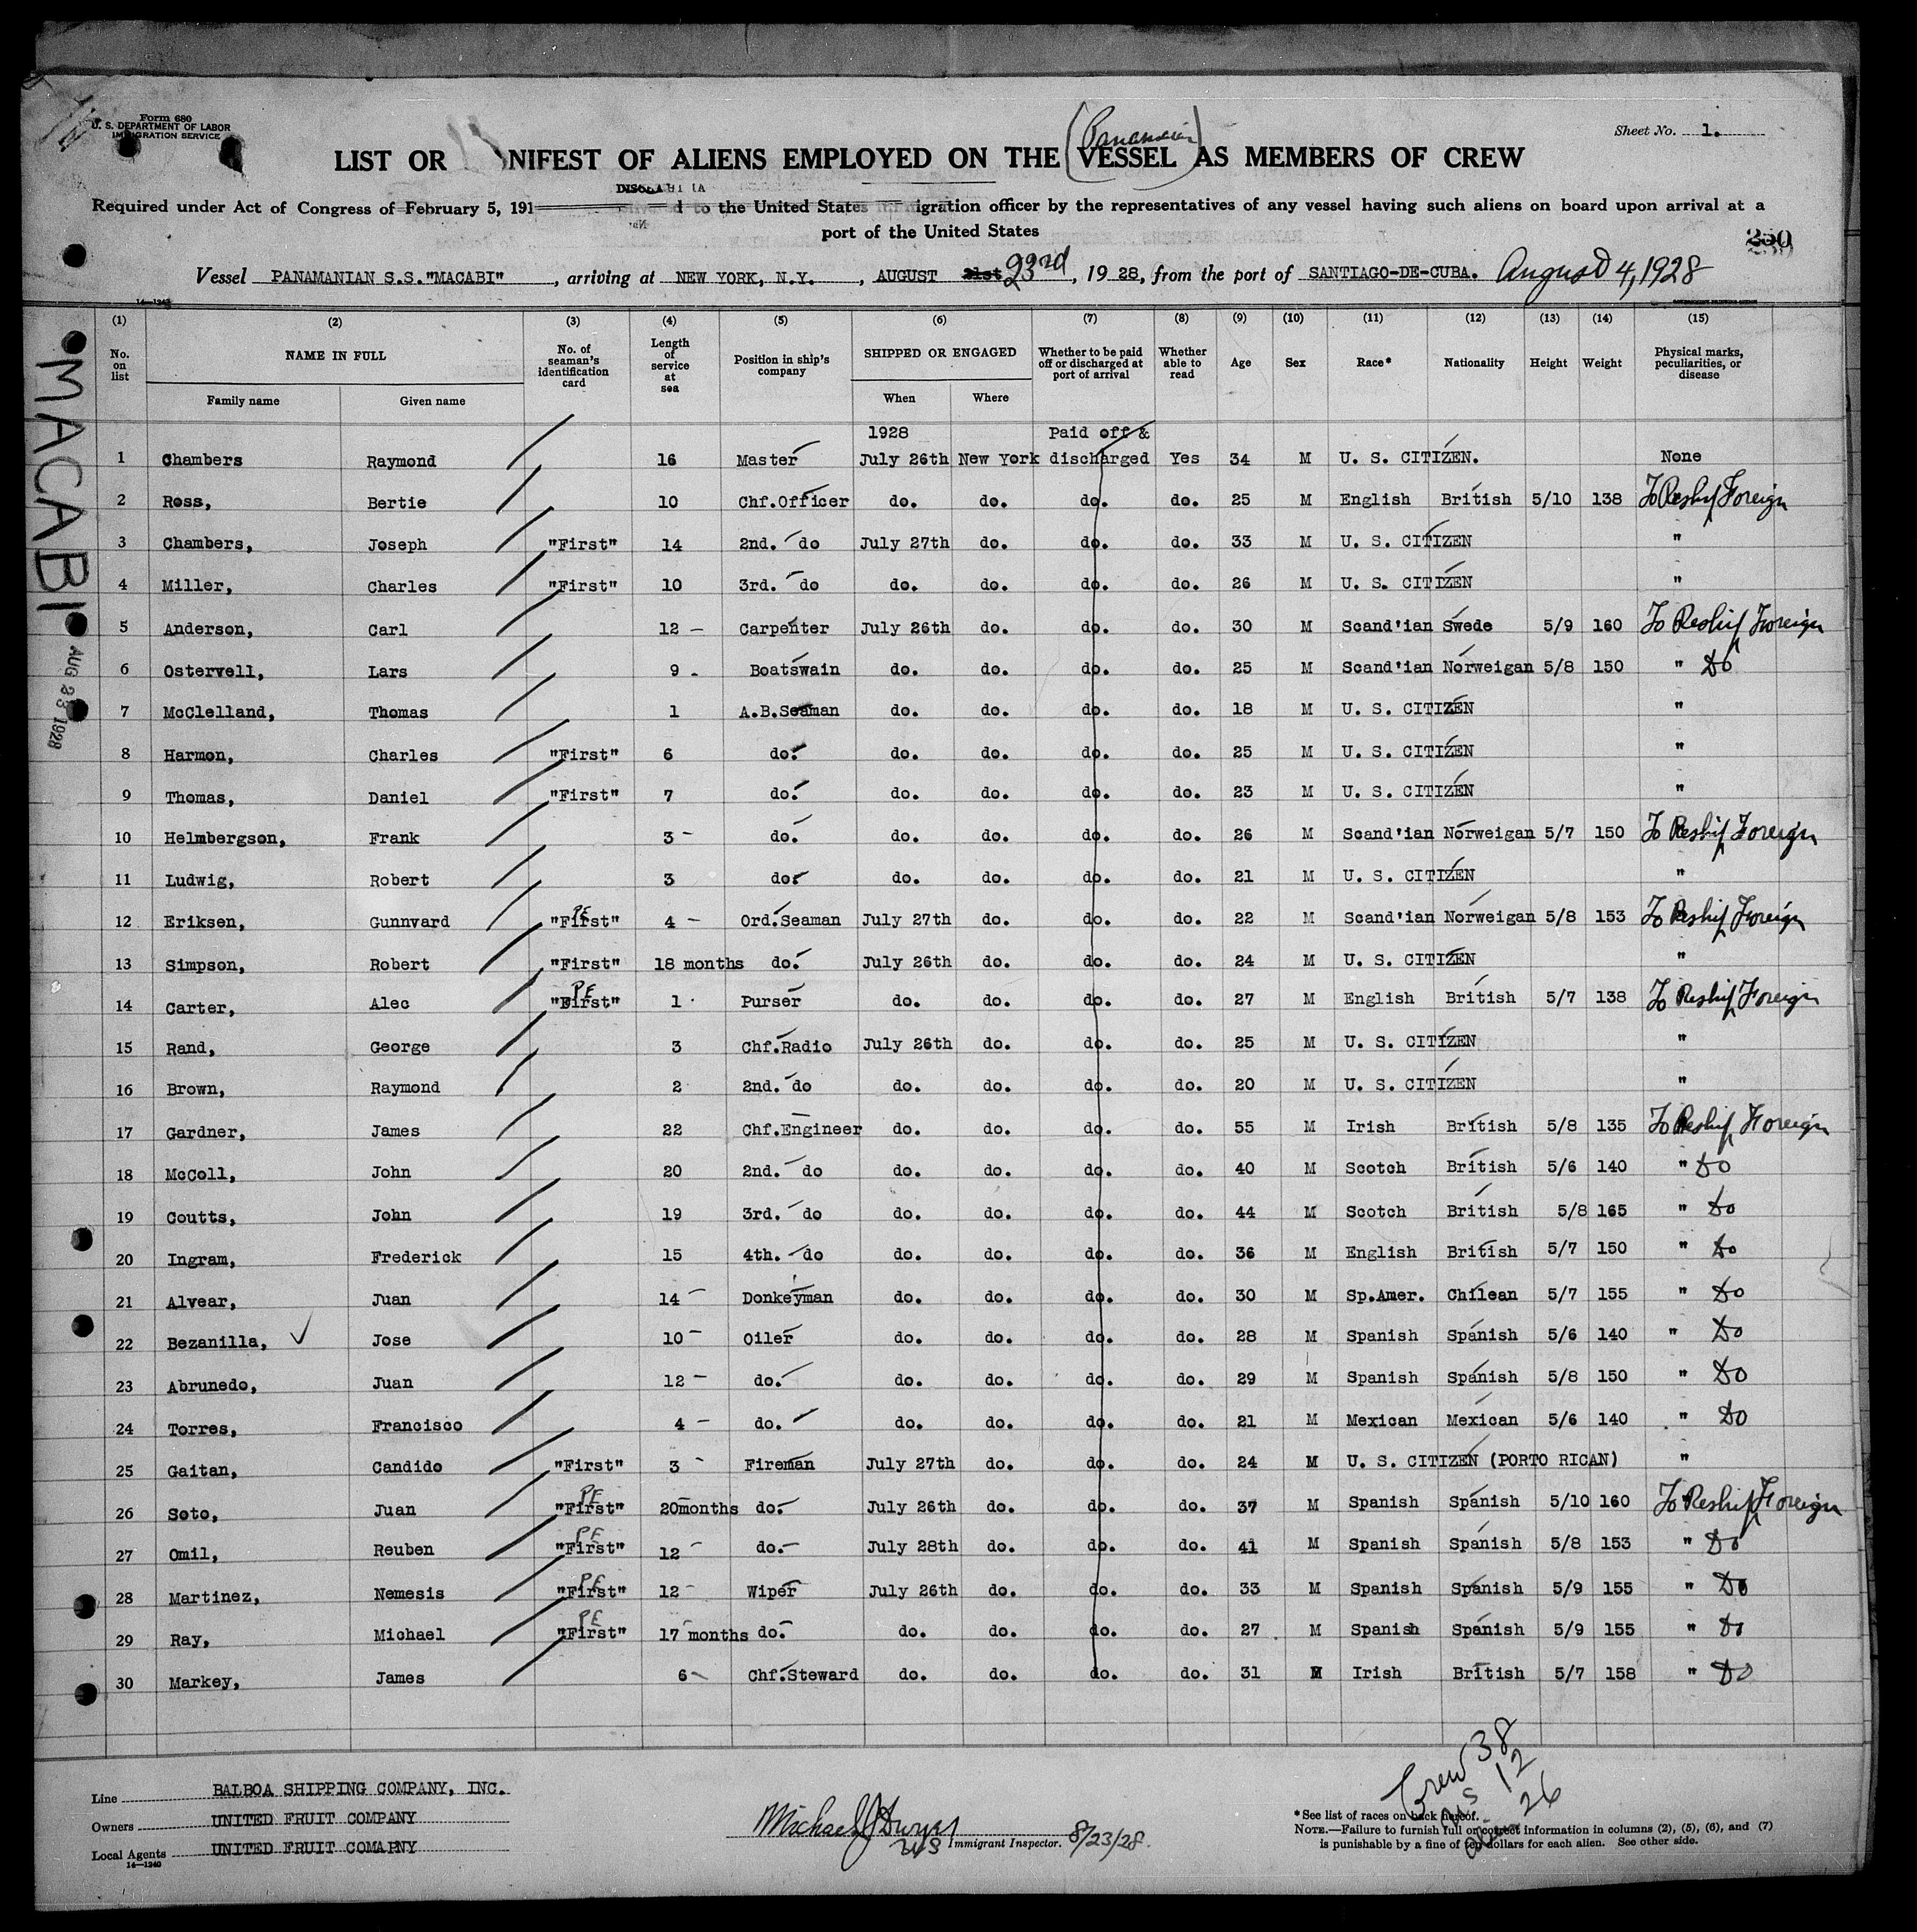 Form 680
U. S. DEPARTMENT OF LABOR
IMMIGRATION SERVICE
Sheet No. 1.
(Panamanian)
LIST OR NIFEST OF ALIENS EMPLOYED ON THE VESSEL AS MEMBERS OF CREW
Required under Act of Congress of February 5, 191 d to the United States igration officer by the representatives of any vessel having such aliens on board upon arrival at a
port of the United States
230
Vessel PANAMANIAN S.S."MACABI", arriving at NEW YORK, N.Y., AUGUST 21st 23rd, 1928, from the port of SANTIAGO-DE-CUBA. August 4, 1928
MACABI
AUG 23 1928
(1) (2) (3) (4) (5) (6) (7) (8) (9) (10) (11) (12) (13) (14) (15)
No. on list NAME IN FULL No. of seaman's identification card Length of service at sea Position in ship's company SHIPPED OR ENGAGED Whether to be paid off or discharged at port of arrival Whether able to read Age Sex Race* Nationality Height Weight Physical marks, peculiarities, or disease
Family name Given name When Where
1928 Paid off &
1 Chambers Raymond 16 Master July 26th New York discharged Yes 34 M U. S. CITIZEN. None
2 Ross, Bertie 10 Chf.Officer do. do. do. do. 25 M English British 5/10 138 To Reship Foreign
3 Chambers, Joseph "First" 14 2nd. do July 27th do. do. do. 33 M U. S. CITIZEN "
4 Miller, Charles "First" 10 3rd. do do. do. do. do. 26 M U. S. CITIZEN "
5 Anderson, Carl 12 - Carpenter July 26th do. do. do. 30 M Scand'ian Swede 5/9 160 To Reship Foreign
6 Ostervell, Lars 9 - Boatswain do. do. do. do. 25 M Scand'ian Norweigan 5/8 150 " Do
7 McClelland, Thomas 1 A.B.Seaman do. do. do. do. 18 M U. S. CITIZEN "
8 Harmon, Charles "First" 6 do. do. do. do. do. 25 M U. S. CITIZEN "
9 Thomas, Daniel "First" 7 do. do. do. do. do. 23 M U. S. CITIZEN "
10 Helmbergson, Frank 3 - do. do. do. do. do. 26 M Scand'ian Norweigan 5/7 150 To Reship Foreign
11 Ludwig, Robert 3 do. do. do. do. do. 21 M U. S. CITIZEN "
12 Eriksen, Gunnvard "First" PE 4 - Ord.Seaman July 27th do. do. do. 22 M Scand'ian Norweigan 5/8 153 To Reship Foreign
13 Simpson, Robert "First" 18 months do. July 26th do. do. do. 24 M U. S. CITIZEN "
14 Carter, Alec "First" PE 1 Purser do. do. do. do. 27 M English British 5/7 138 To Reship Foreign
15 Rand, George 3 Chf.Radio July 26th do. do. do. 25 M U. S. CITIZEN "
16 Brown, Raymond 2 2nd. do do. do. do. do. 20 M U. S. CITIZEN "
17 Gardner, James 22 Chf.Engineer do. do. do. do. 55 M Irish British 5/8 135 To Reship Foreign
18 McColl, John 20 2nd. do do. do. do. do. 40 M Scotch British 5/6 140 " Do
19 Coutts, John 19 3rd. do do. do. do. do. 44 M Scotch British 5/8 165 " Do
20 Ingram, Frederick 15 4th. do do. do. do. do. 36 M English British 5/7 150 " Do
21 Alvear, Juan 14 - Donkeyman do. do. do. do. 30 M Sp.Amer. Chilean 5/7 155 " Do
22 Bezanilla, Jose 10 - Oiler do. do. do. do. 28 M Spanish Spanish 5/6 140 " Do
23 Abrunedo, Juan 12 - do. do. do. do. do. 29 M Spanish Spanish 5/8 150 " Do
24 Torres, Francisco 4 - do. do. do. do. do. 21 M Mexican Mexican 5/6 140 " Do
25 Gaitan, Candido "First" 3 - Fireman July 27th do. do. do. 24 M U. S. CITIZEN (PORTO RICAN) "
26 Soto, Juan "First" PE 20months do. July 26th do. do. do. 37 M Spanish Spanish 5/10 160 To Reship Foreign
27 Omil, Reuben "First" PE 12 - do. July 28th do. do. do. 41 M Spanish Spanish 5/8 153 " Do
28 Martinez, Nemesis "First" PE 12 - Wiper July 26th do. do. do. 33 M Spanish Spanish 5/9 155 " Do
29 Ray, Michael "First" PE 17 months do. do. do. do. do. 27 M Spanish Spanish 5/9 155 " Do
30 Markey, James 6 - Chf.Steward do. do. do. do. 31 M Irish British 5/7 158 " Do
Crew 38
US 12
Alien 26
Line BALBOA SHIPPING COMPANY, INC.
Owners UNITED FRUIT COMPANY
Local Agents UNITED FRUIT COMAPNY
14-1240
Michael J Dwyer
Immigrant Inspector. 8/23/28.
*See list of races on back hereof.
NOTE.—Failure to furnish full or correct information in columns (2), (5), (6), and (7)
is punishable by a fine of ten dollars for each alien. See other side.